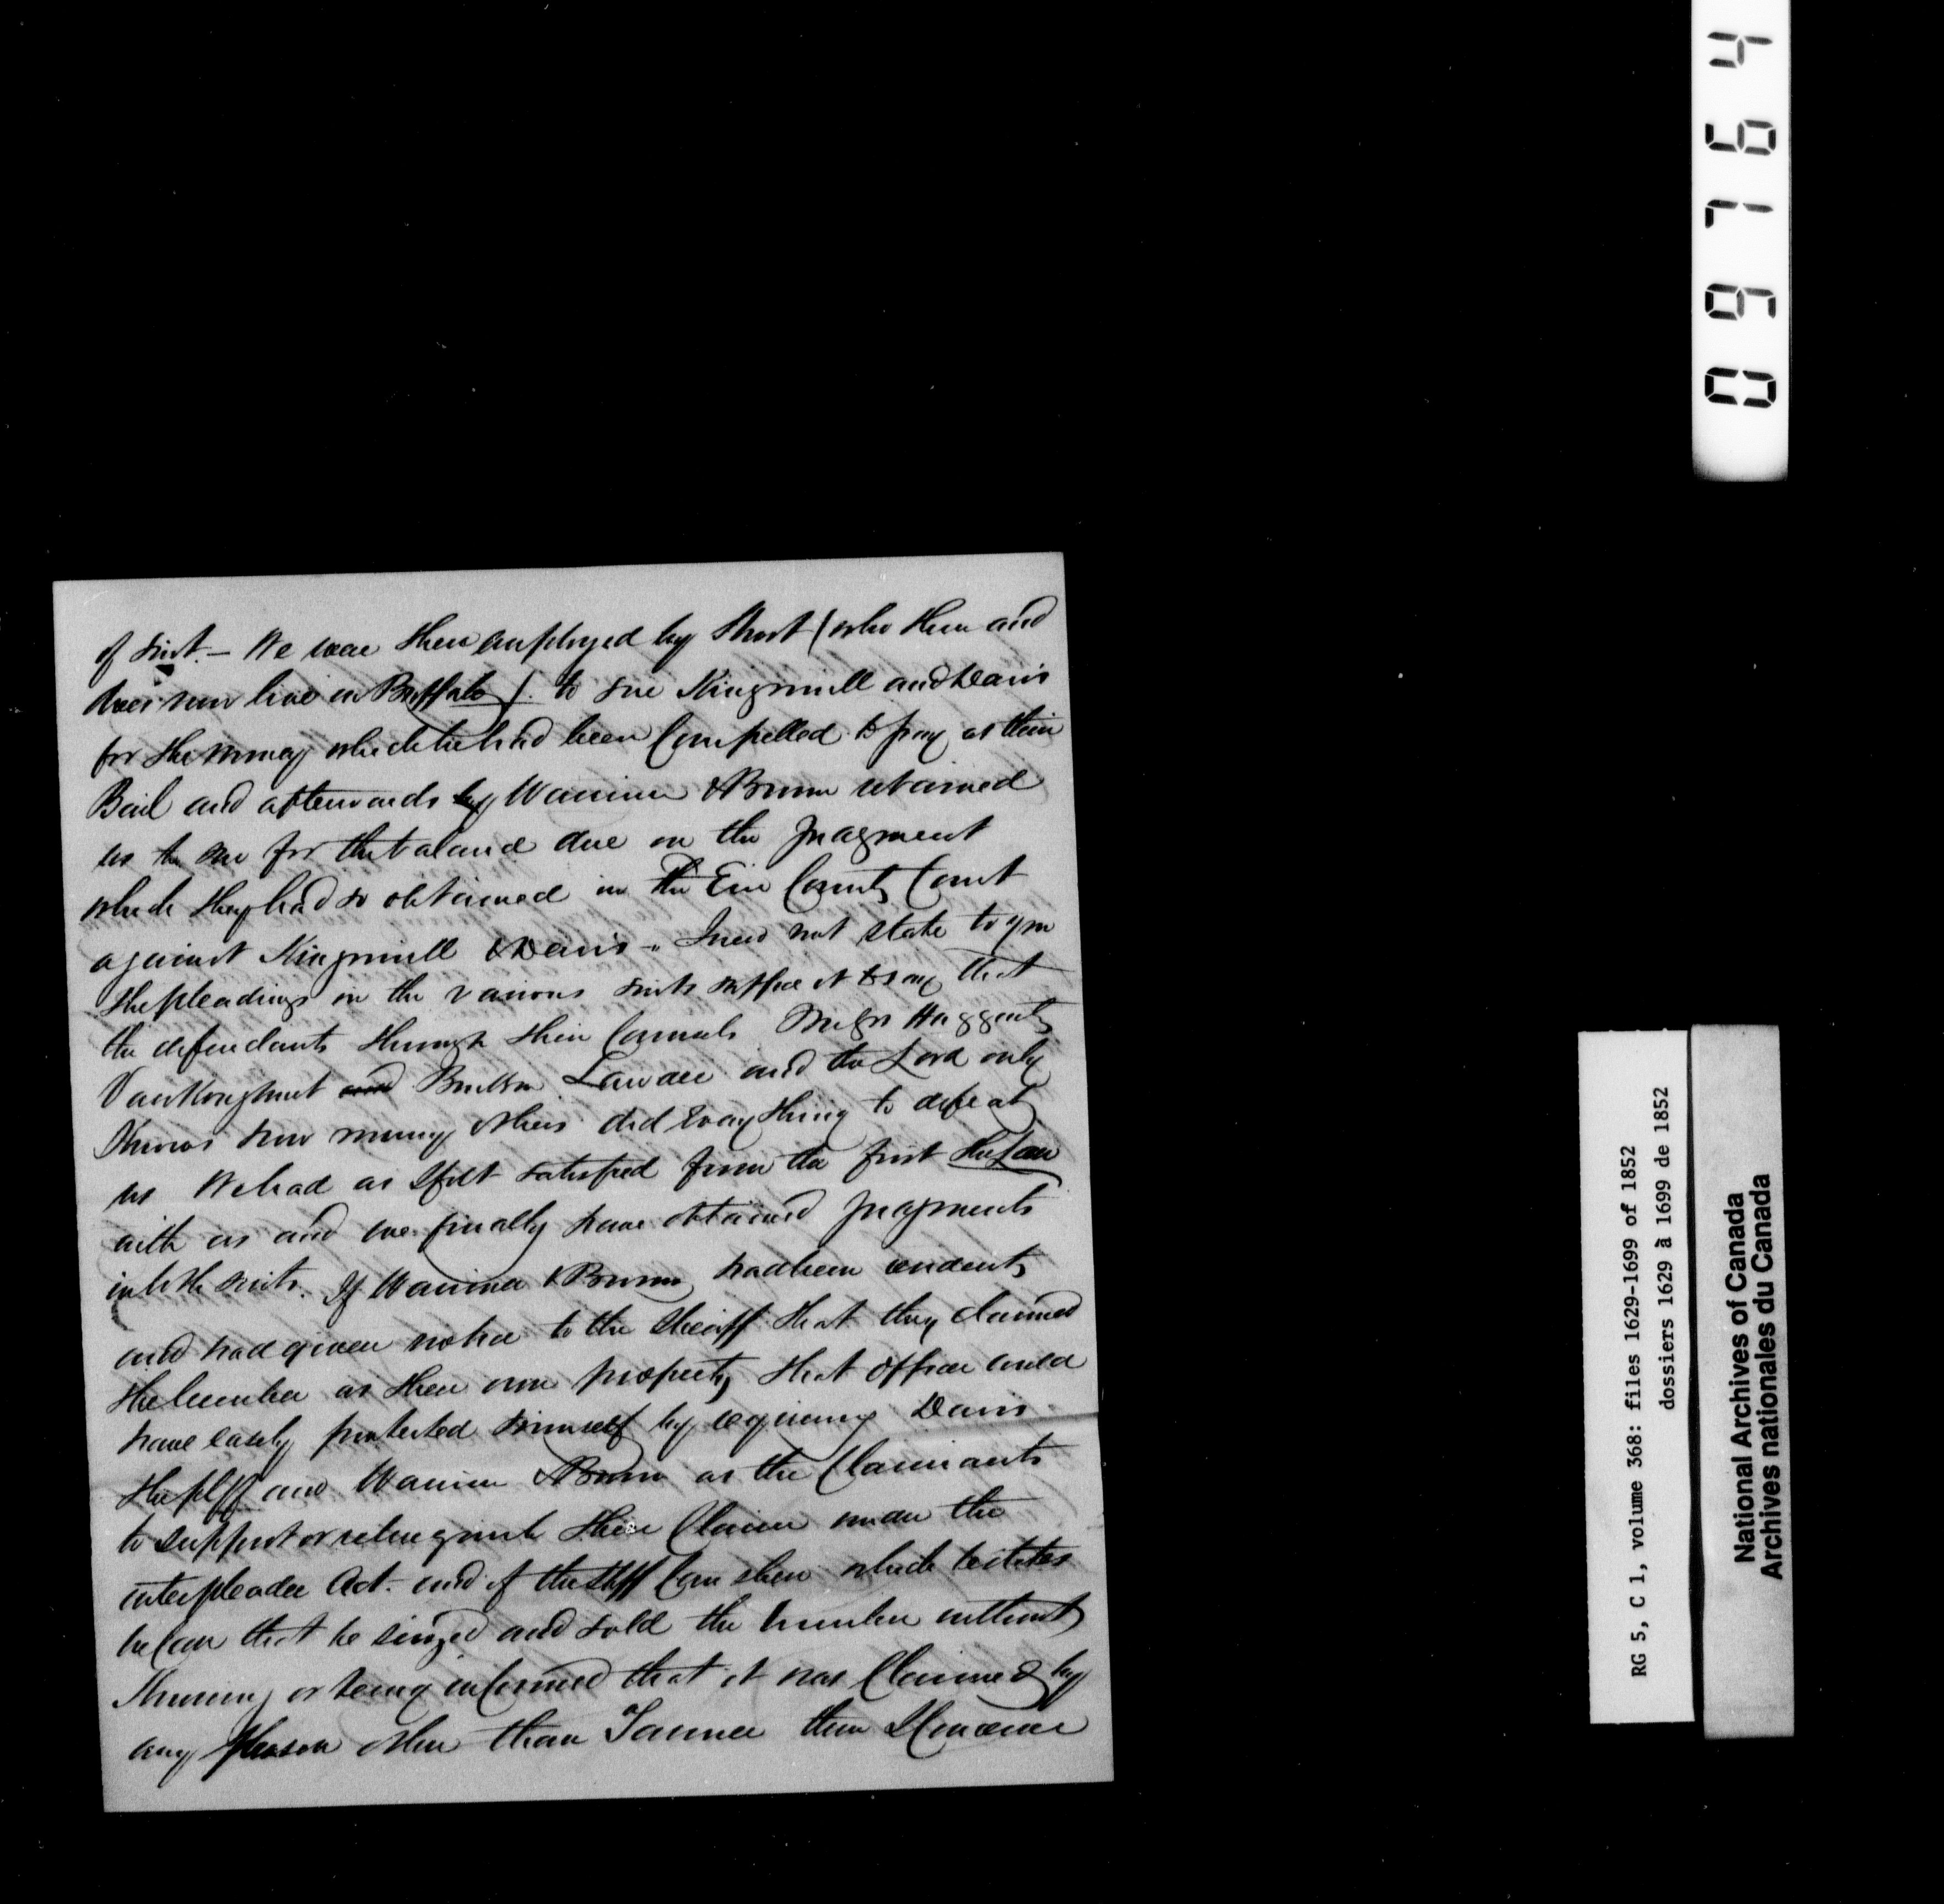 of suit. — We were then employed by Short (who then and
does now live in Buffalo). to sue Kingsmill and Davis
for the money which he had been Compelled to pay as their
Bail and afterwards by Warriner & Brown retained
us to sue for the balance due on the Judgment
which they had so obtained in the Erie County Court
against Kingsmill & Davis – I need not state to you
the pleadings in the various suits suffice it to say that
the defendants through their Counsels Messrs Haggarty
VanKoughnet and Britton Lawder and the Lord only
Knows how many others did everything to defeat
us We had as I felt satisfied from the first the Law
with us and we finally have obtained Judgments
in both suits. If Warriner & Brown had been
and had given notice to the Sheriff that they claimed
the lumber as their own property, that officer could
have easily protected himself by requiring Davis
the plff and Warriner & Brown as the Claimants
to support or relinquish their Claim under the
interpleader Act. and if the Shff Can shew which he states
he Can that he seized and sold the lumber without
Knowing or being informed that it was Claimed by
any person other than Tanner then
National Archives of Canada
Archives nationales du Canada
RG 5, C 1, volume 368: files 1629-1699 of 1852
dossiers 1629 à 1699 de 1852
09764